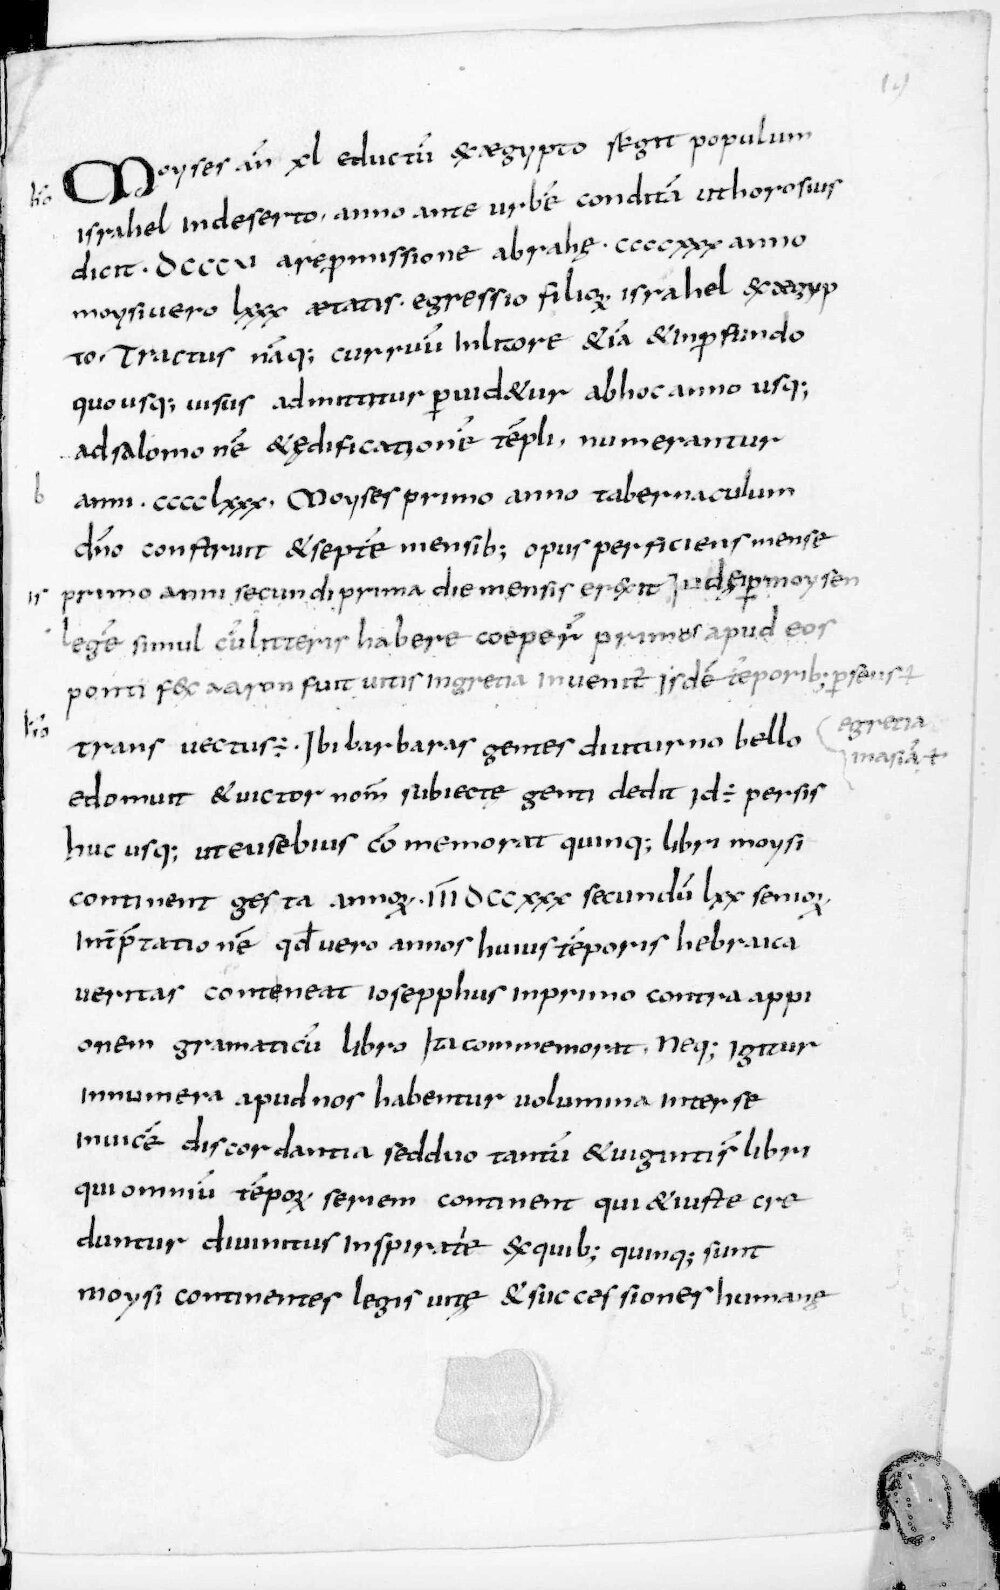 14
Moyses ān xl eductū &xægypto regit populum
hīo
israhel indeserto. anno ante urbē conditā ut horosius
dicit. DCCCVI arepmissione abrahę. ccccxxx anno
moysi vero lxxx ætatis. egressio filioꝝ. israhel &xægyp
to. Tractus nāq; curruū inlitore &iā &inꝓfundo
quousq; uisus admittitur ꝑuid&ur abhoc anno usq;
adsalomonē &ędificationē tēpli. numerantur
b
anni. cccclxxx. Moyses primo anno tabernaculum
dn̄o construit &septē mensib; opus perficiens mense
is
primo anni secundi prima die mensis er&xit Judęi ꝑ moysen
legē simul cū litteris habere coeper̄ primus apud eos
pontif&x aaron fuit uitis ingretia inuenit̄ Isdē tēporib; ꝑseus ÷
hīo
egretia
inasiā ÷
trans uectus ÷. Ibi barbaras gentes diuturno bello
edomuit &uictor nom̄ subiecte genti dedit id ÷ persis
huc usq; ut eusebius cōmemorat quinq; libri moysi
continent gesta annoꝝ. IIIDCCxxx secundū lxx senioꝝ.
inꝑtationē qd̄ vero annos huius tēporis hebraica
ueritas conteneat iosepphus inprimo contra appi
onem gramaticū libro Ita commemorat. Neq; igitur
innumera apud nos habentur uolumina inter se
inuicē discordantia sed duo tantū &uiginti s̄ libri
qui omniū tēpoꝝ. seriem continent qui &iuste cre
duntur diuinitus inspirate &xquib; quinq; sunt
moysi continentes legis uitę &successiones humanę